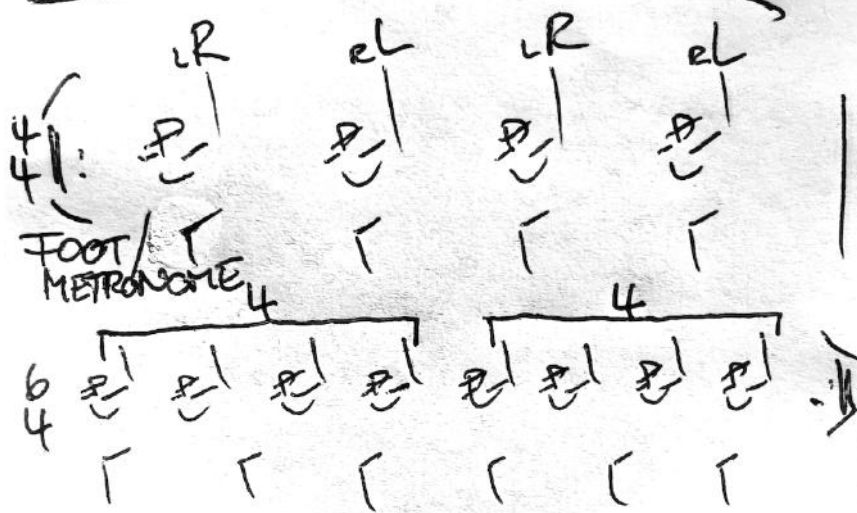 LR RL LR RL
4
4
FOOT/
METRONOME
4 4
6
4